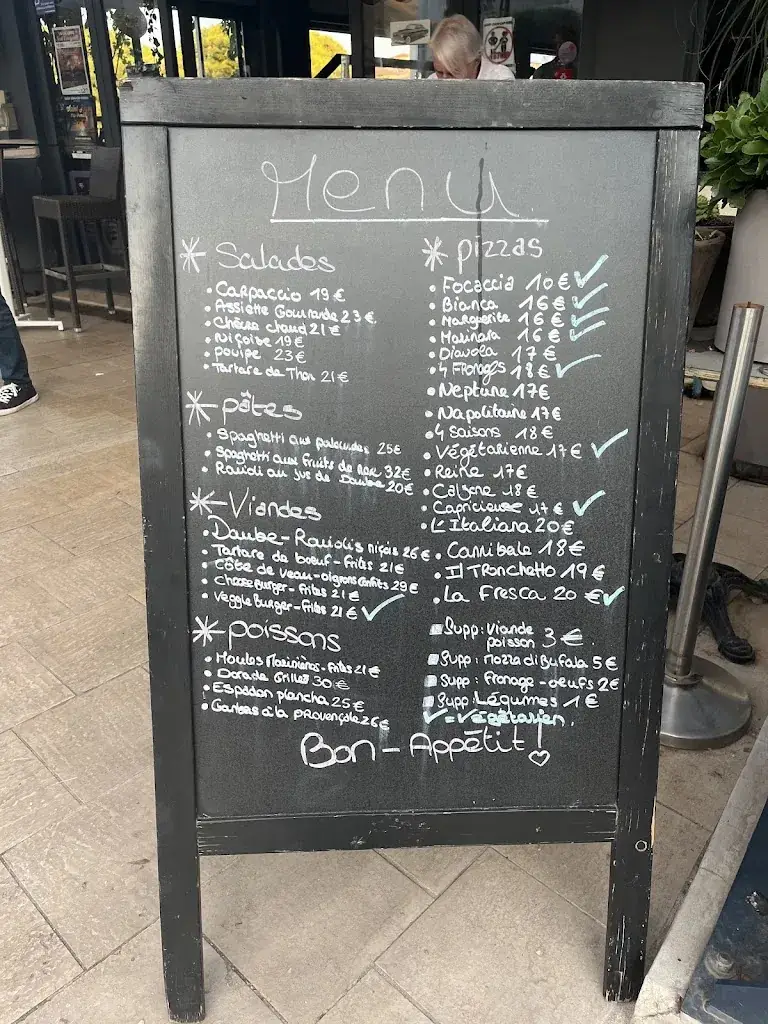 Menu
* Salades
• Carpaccio 19 €
• Assiette Gourmande 23 €
• Chèvre chaud 21 €
• Niçoise 19 €
• poulpe 23 €
• Tartare de Thon 21 €
* pâtes
• Spaghetti aux palourdes 25 €
• Spaghetti aux fruits de mer 32 €
• Ravioli au jus de Daube 20 €
* Viandes
• Daube - Raviolis niçois 26 €
• Tartare de boeuf - frites 21 €
• Côte de veau - oignons confits 29 €
• Cheese Burger - frites 21 €
• Veggie Burger - frites 21 € ✓
* poissons
• Moules Marinières - frites 21 €
• Dorade Grillée 30 €
• Espadon plancha 25 €
• Gambas à la provençale 26 €
* pizzas
• Focaccia 10 € ✓
• Bianca 16 € ✓
• Marguerite 16 € ✓
• Marinara 16 € ✓
• Diavola 17 €
• 4 Fromages 18 € ✓
• Neptune 17 €
• Napolitaine 17 €
• 4 saisons 18 €
• Végétarienne 17 € ✓
• Reine 17 €
• Calzone 18 €
• Capricieuse 17 € ✓
• L'Italiana 20 €
• Cannibale 18 €
• Il Tronchetto 19 €
• La Fresca 20 € ✓
Supp : Viande
poisson 3 €
Supp : Mozza di Bufala 5 €
Supp : fromage - oeufs 2 €
Supp : Légumes 1 €
✓ = Végétarien.
Bon - Appétit !